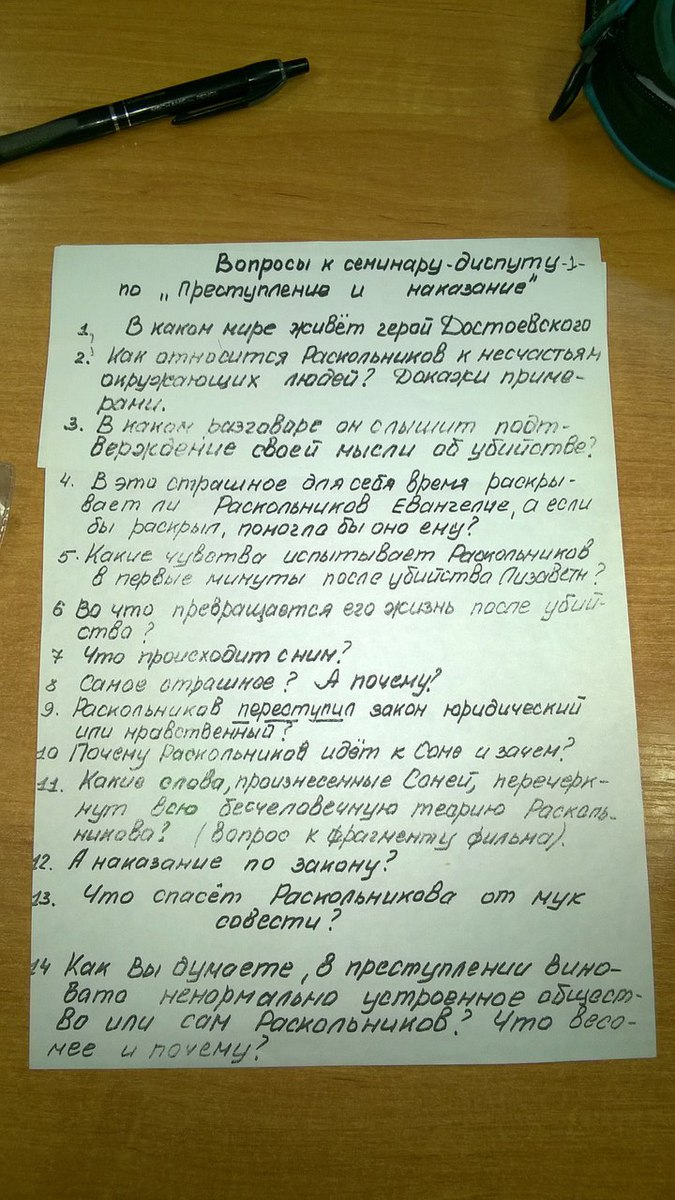 Вопросы к семинару-диспуту -1-
по „Преступление и наказание"
1, В каком мире живёт герой Достоевского
2. Как относится Раскольников к несчастьям
окружающих людей? Докажи приме-
рами.
3. В каком разговоре он слышит подт-
верждение своей мысли об убийстве?
4. В это страшное для себя время раскры-
вает ли Раскольников Евангелие, а если
бы раскрыл, помогло бы оно ему?
5. Какие чувства испытывает Раскольников
в первые минуты после убийства Лизаветы?
6 Во что превращается его жизнь после убий-
ства?
7 Что происходит с ним?
8 Самое страшное? А почему?
9. Раскольников переступил закон юридический
или нравственный?
10 Почему Раскольников идёт к Соне и зачем?
11. Какие слова, произнесенные Соней, перечерк-
нут всю бесчеловечную теорию Расколь-
никова? (вопрос к фрагменту фильма).
12. А наказание по закону?
13. Что спасёт Раскольникова от мук
совести?
14 Как Вы думаете, в преступлении вино-
вато ненормально устроенное общест-
во или сам Раскольников? Что весо-
мее и почему?